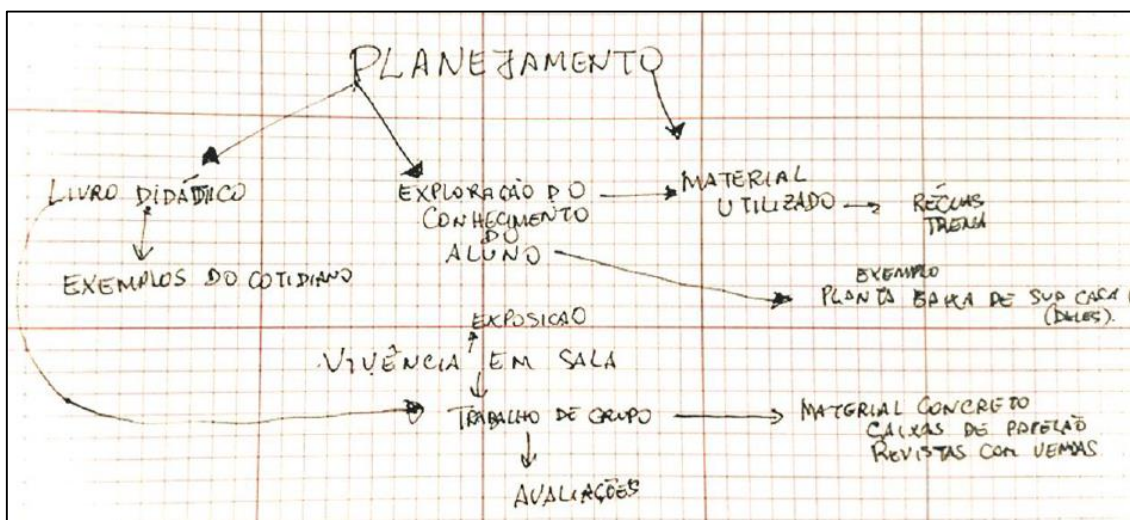 PLANEJAMENTO
LIVRO DIDÁTICO
EXEMPLOS DO COTIDIANO
EXPLORAÇÃO DO
CONHECIMENTO
DO
ALUNO
MATERIAL
UTILIZADO
RÉGUAS
TRENA
EXEMPLO
PLANTA BAIXA DE SUA CASA
(DELES).
EXPOSICAO
VIVÊNCIA EM SALA
TRABALHO DE GRUPO
MATERIAL CONCRETO
CAIXAS DE PAPELÃO
REVISTAS COM VENDAS
AVALIAÇÕES